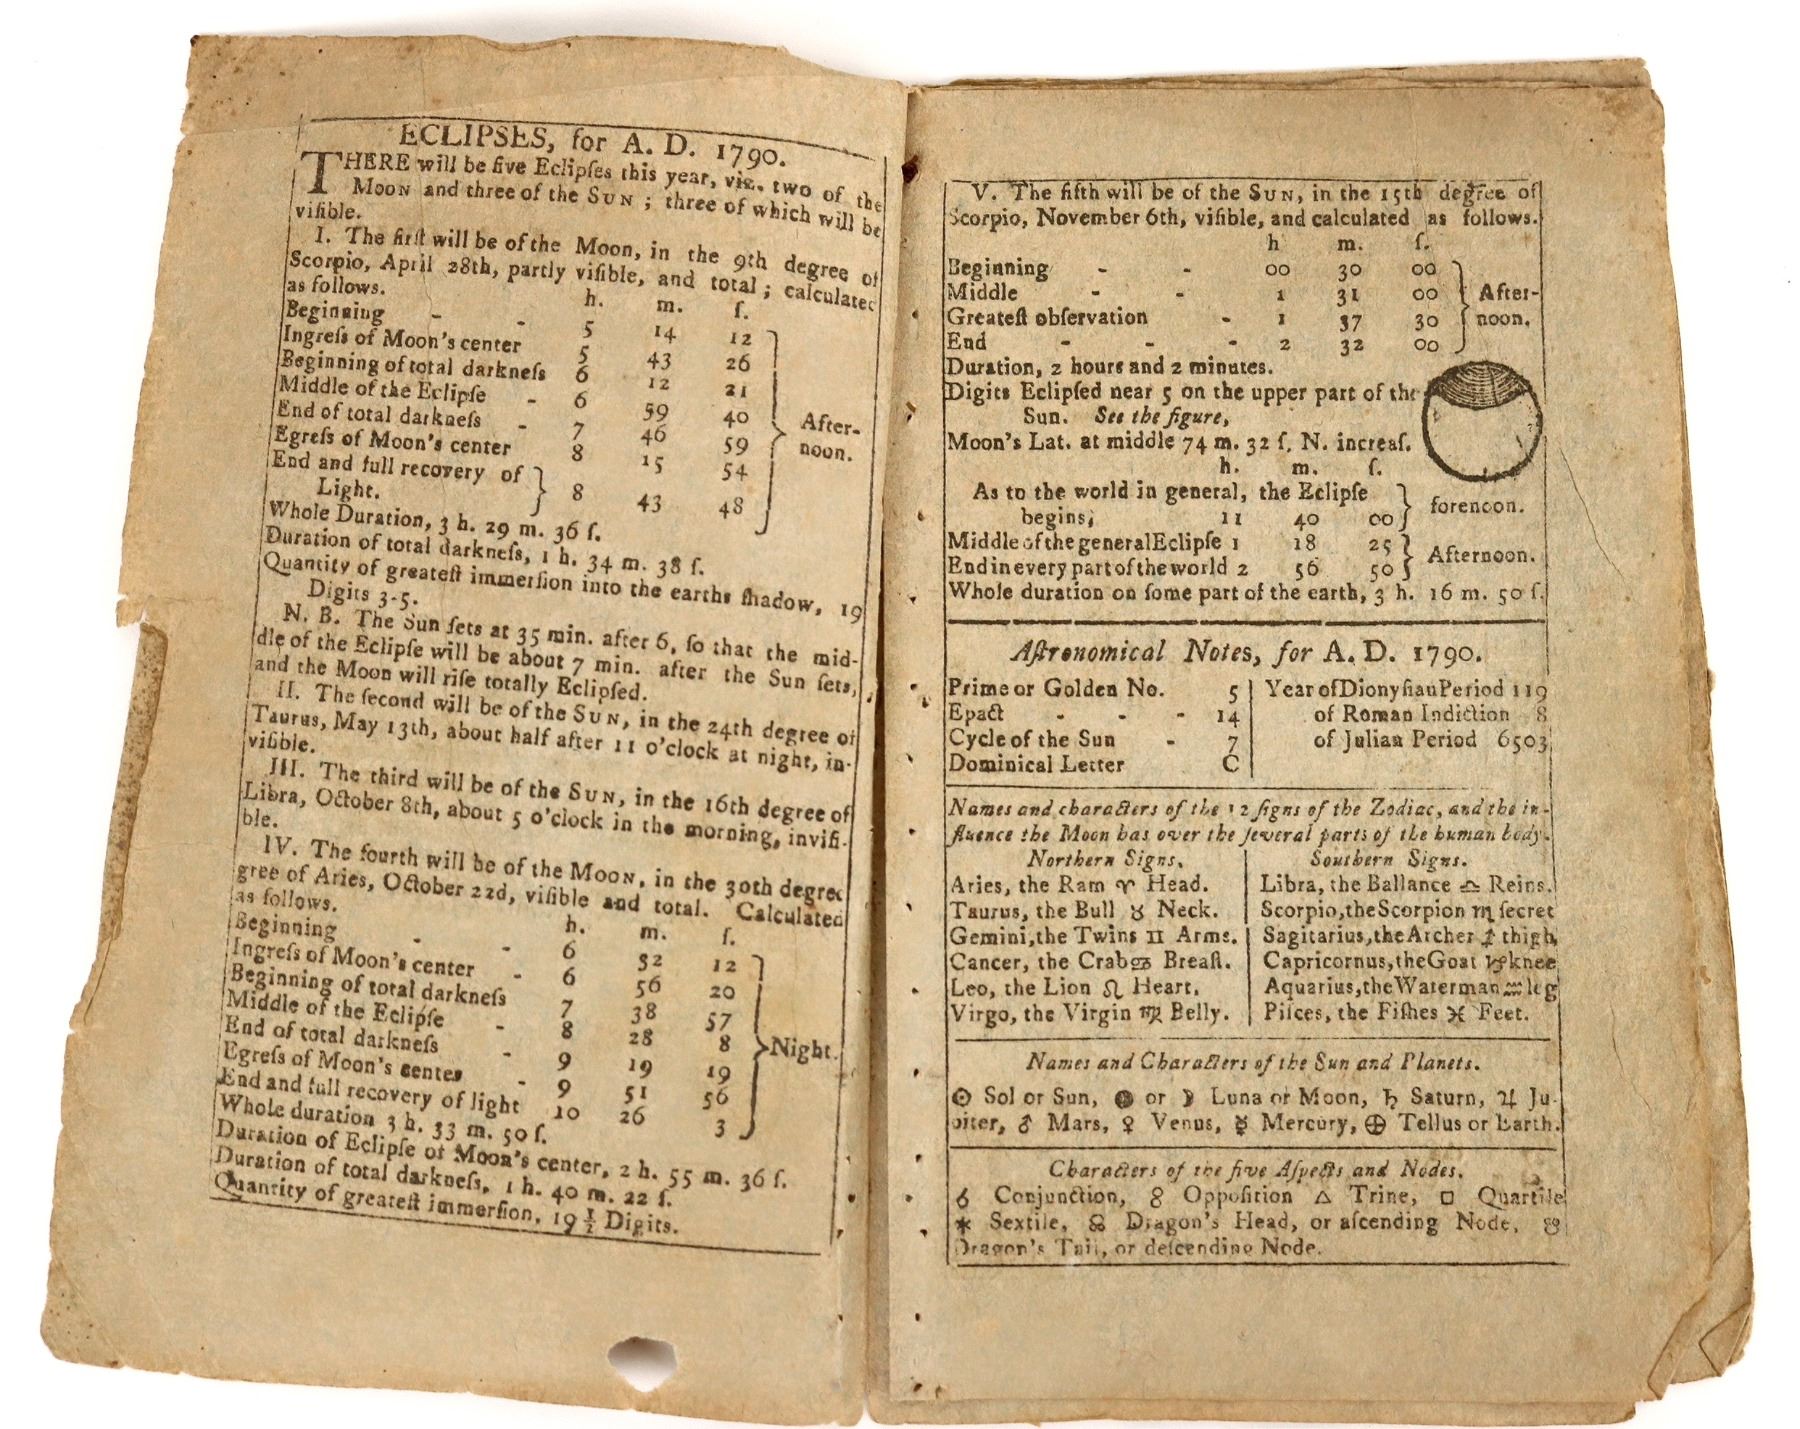 ECLIPSES, for A. D. 1790.
THERE will be five Eclipſes this year, viz. two of the
Moon and three of the Sun ; three of which will be
viſible.
I. The firſt will be of the Moon, in the 9th degree of
Scorpio, April 28th, partly viſible, and total ; calculated
as follows.
h. m. ſ.
Beginning - - 5 14 12
Ingreſs of Moon's center 5 43 26
Beginning of total darkneſs 6 12 21
Middle of the Eclipſe - 6 59 40
End of total darkneſs - 7 46 59
Egreſs of Moon's center 8 15 54
End and full recovery of
Light. } 8 43 48
} After-
noon.
Whole Duration, 3 h. 29 m. 36 ſ.
Duration of total darkneſs, 1 h. 34 m. 38 ſ.
Quantity of greateſt immerſion into the earths ſhadow, 19
Digits 3-5.
N. B. The Sun ſets at 35 min. after 6, ſo that the mid-
dle of the Eclipſe will be about 7 min. after the Sun ſets,
and the Moon will riſe totally Eclipſed.
II. The ſecond will be of the Sun, in the 24th degree of
Taurus, May 13th, about half after 11 o'clock at night, in-
viſible.
III. The third will be of the Sun, in the 16th degree of
Libra, October 8th, about 5 o'clock in the morning, inviſi-
ble.
IV. The fourth will be of the Moon, in the 30th degree
gree of Aries, October 22d, viſible and total. Calculated
as follows.
h. m. ſ.
Beginning - - 6 52 12
Ingreſs of Moon's center - 6 56 20
Beginning of total darkneſs 7 38 57
Middle of the Eclipſe - 8 28 8
End of total darkneſs - 9 19 19
Egreſs of Moon's center - 9 51 56
End and full recovery of light 10 26 3
} Night.
Whole duration 3 h. 33 m. 50 ſ.
Duration of Eclipſe of Moon's center, 2 h. 55 m. 36 ſ.
Duration of total darkneſs, 1 h. 40 m. 22 ſ.
Quantity of greateſt immerſion, 19 1/2 Digits.
V. The fifth will be of the Sun, in the 15th degree of
Scorpio, November 6th, viſible, and calculated as follows.
h m. ſ.
Beginning - - 00 30 00
Middle - - 1 31 00
Greateſt obſervation - 1 37 30
End - - - 2 32 00
} After-
noon.
Duration, 2 hours and 2 minutes.
Digits Eclipſed near 5 on the upper part of the
Sun. See the figure,
Moon's Lat. at middle 74 m. 32 ſ. N. increaſ.
h. m. ſ.
As to the world in general, the Eclipſe
begins, 11 40 00 } forenoon.
Middle of the general Eclipſe 1 18 25
End in every part of the world 2 56 50 } Afternoon.
Whole duration on ſome part of the earth, 3 h. 16 m. 50 ſ.
Aſtronomical Notes, for A. D. 1790.
Prime or Golden No. 5 | Year of Dionyſian Period 119
Epact - - - 14 | of Roman Indiction 8
Cycle of the Sun - 7 | of Julian Period 6503
Dominical Letter C
Names and characters of the 12 ſigns of the Zodiac, and the in-
fluence the Moon has over the ſeveral parts of the human body.
Northern Signs. | Southern Signs.
Aries, the Ram ♈ Head. | Libra, the Ballance ♎ Reins.
Taurus, the Bull ♉ Neck. | Scorpio, the Scorpion ♏ ſecret
Gemini, the Twins ♊ Arms. | Sagitarius, the Archer ♐ thigh
Cancer, the Crab ♋ Breaſt. | Capricornus, the Goat ♑ knee
Leo, the Lion ♌ Heart. | Aquarius, the Waterman ♒ leg
Virgo, the Virgin ♍ Belly. | Piſces, the Fiſhes ♓ Feet.
Names and Characters of the Sun and Planets.
☉ Sol or Sun, ● or ☽ Luna or Moon, ♄ Saturn, ♃ Ju-
piter, ♂ Mars, ♀ Venus, ☿ Mercury, ⊕ Tellus or Earth.
Characters of the five Aſpects and Nodes.
☌ Conjunction, ☍ Oppoſition △ Trine, □ Quartile
✶ Sextile, ☊ Dragon's Head, or aſcending Node, ☋
Dragon's Tail, or deſcending Node.